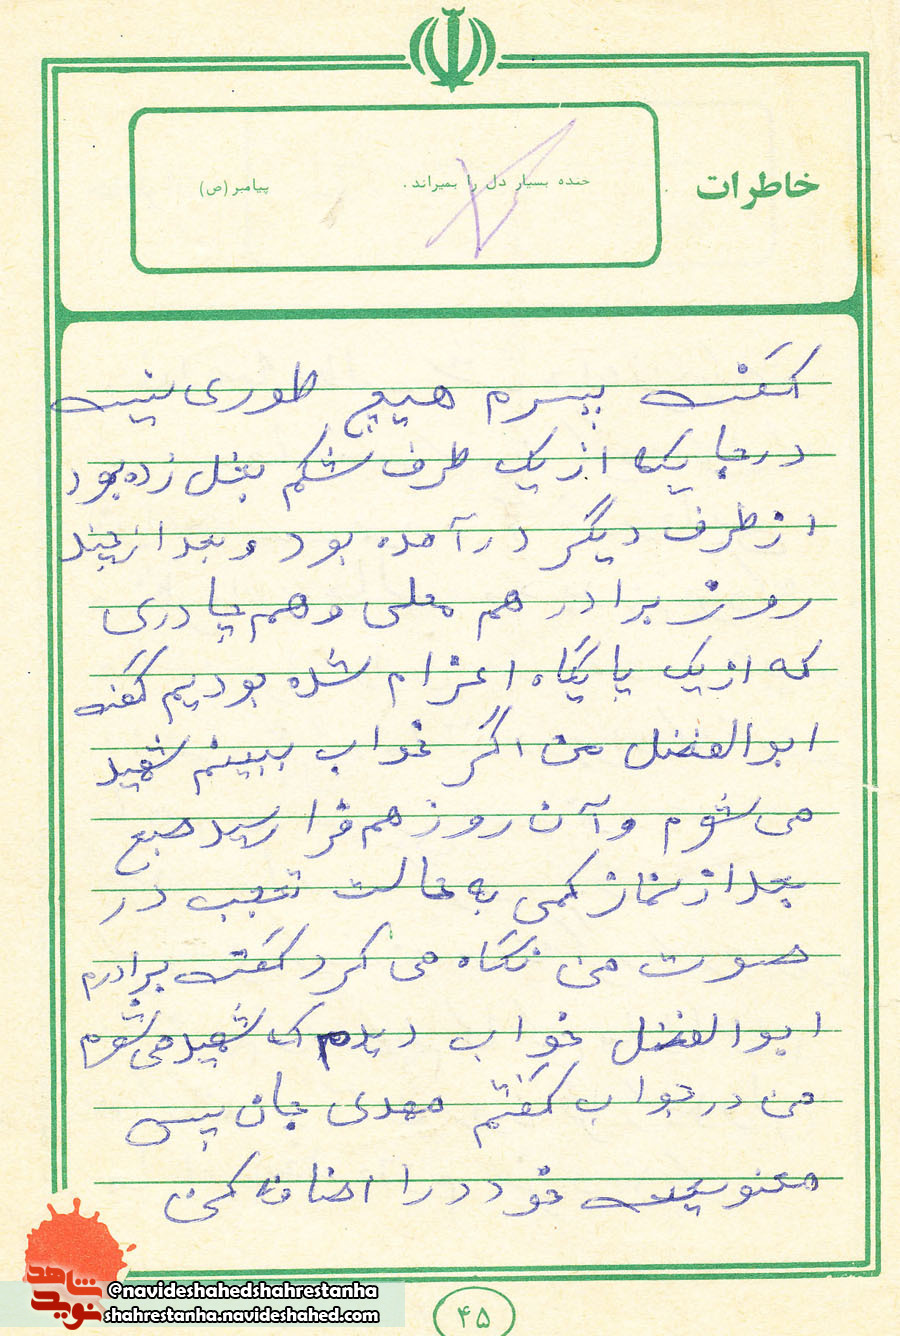 خاطرات
خنده بسیار دل را بمیراند. پیامبر (ص)
گفت پسرم هیچ طوری نیست
در جایکه از یک طرف شکم بغل زده بود
از طرف دیگر در آمده بود و بعد از چند
روز برادر هم محلی و هم چادری
که از یک پایگاه اعزام شده بودیم گفت
ابوالفضل من اگر خواب ببینم شهید
می شوم و آن روز هم فرا رسید صبح
بعد از نماز کمی به حالت تعجب در
صورت من نگاه می کرد گفت برادرم
ابوالفضل خواب دیدم که شهید می شوم
من در جواب گفتم مهدی جان پس
معنویت خود را اضافه کن
شاهد
نوید
@navideshahedshahrestanha
shahrestanha.navideshahed.com
۴۵